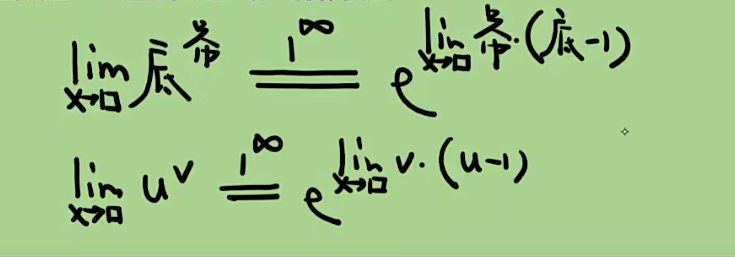 lim x→□ 底^幂 =(1^∞)= e^(lim x→□ 幂·(底-1))
lim x→□ u^v =(1^∞)= e^(lim x→□ v·(u-1))